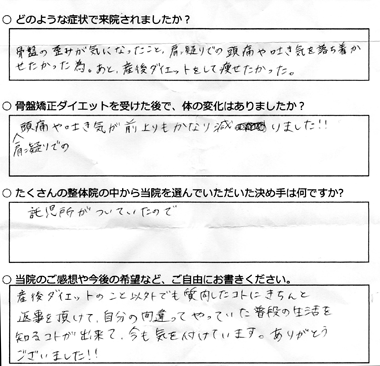 ○ どのような症状で来院されましたか？
骨盤の歪みが気になったこと、肩凝りでの頭痛や吐き気を落ち着か
せたかった為。あと、産後ダイエットをして痩せたかった。
○ 骨盤矯正ダイエットを受けた後で、体の変化はありましたか?
頭痛や吐き気が前よりもかなり減りました!!
肩凝りでの
○ たくさんの整体院の中から当院を選んでいただいた決め手は何ですか?
託児所がついていたので
○ 当院のご感想や今後の希望など、ご自由にお書きください。
産後ダイエットのこと以外でも質問したコトにきちんと
返事を頂けて、自分の間違ってやっていた普段の生活を
知るコトが出来て、今も気を付けています。ありがとう
ございました!!